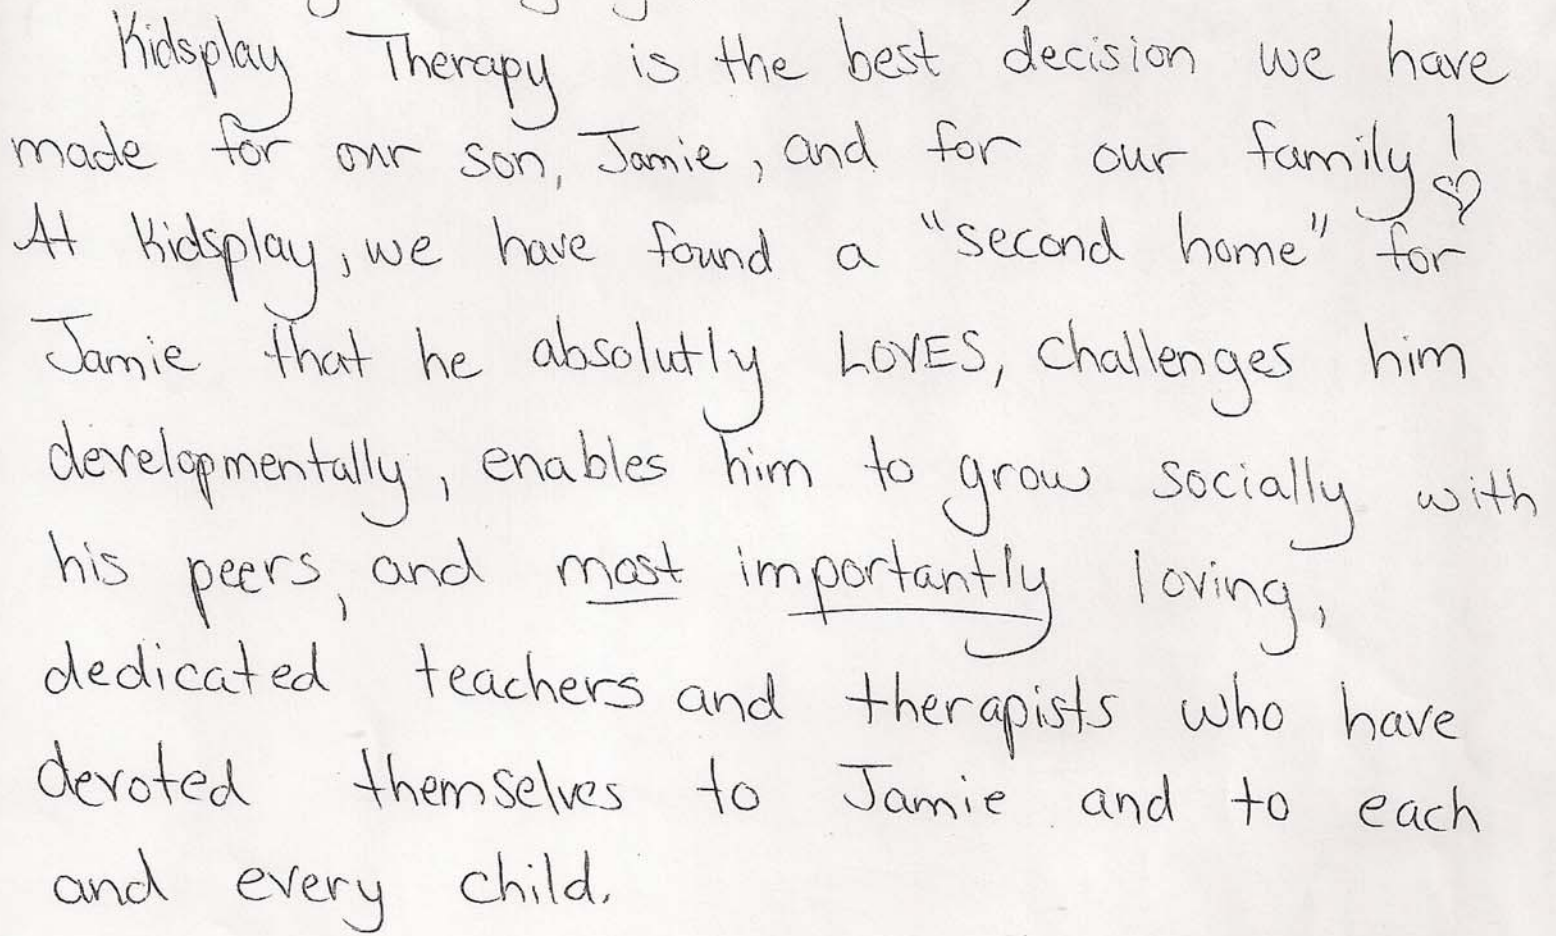 Kidsplay Therapy is the best decision we have
made for our son, Jamie, and for our family!
At Kidsplay, we have found a "second home" for
Jamie that he absolutly LOVES, challenges him
developmentally, enables him to grow socially with
his peers, and most importantly loving,
dedicated teachers and therapists who have
devoted themselves to Jamie and to each
and every child.